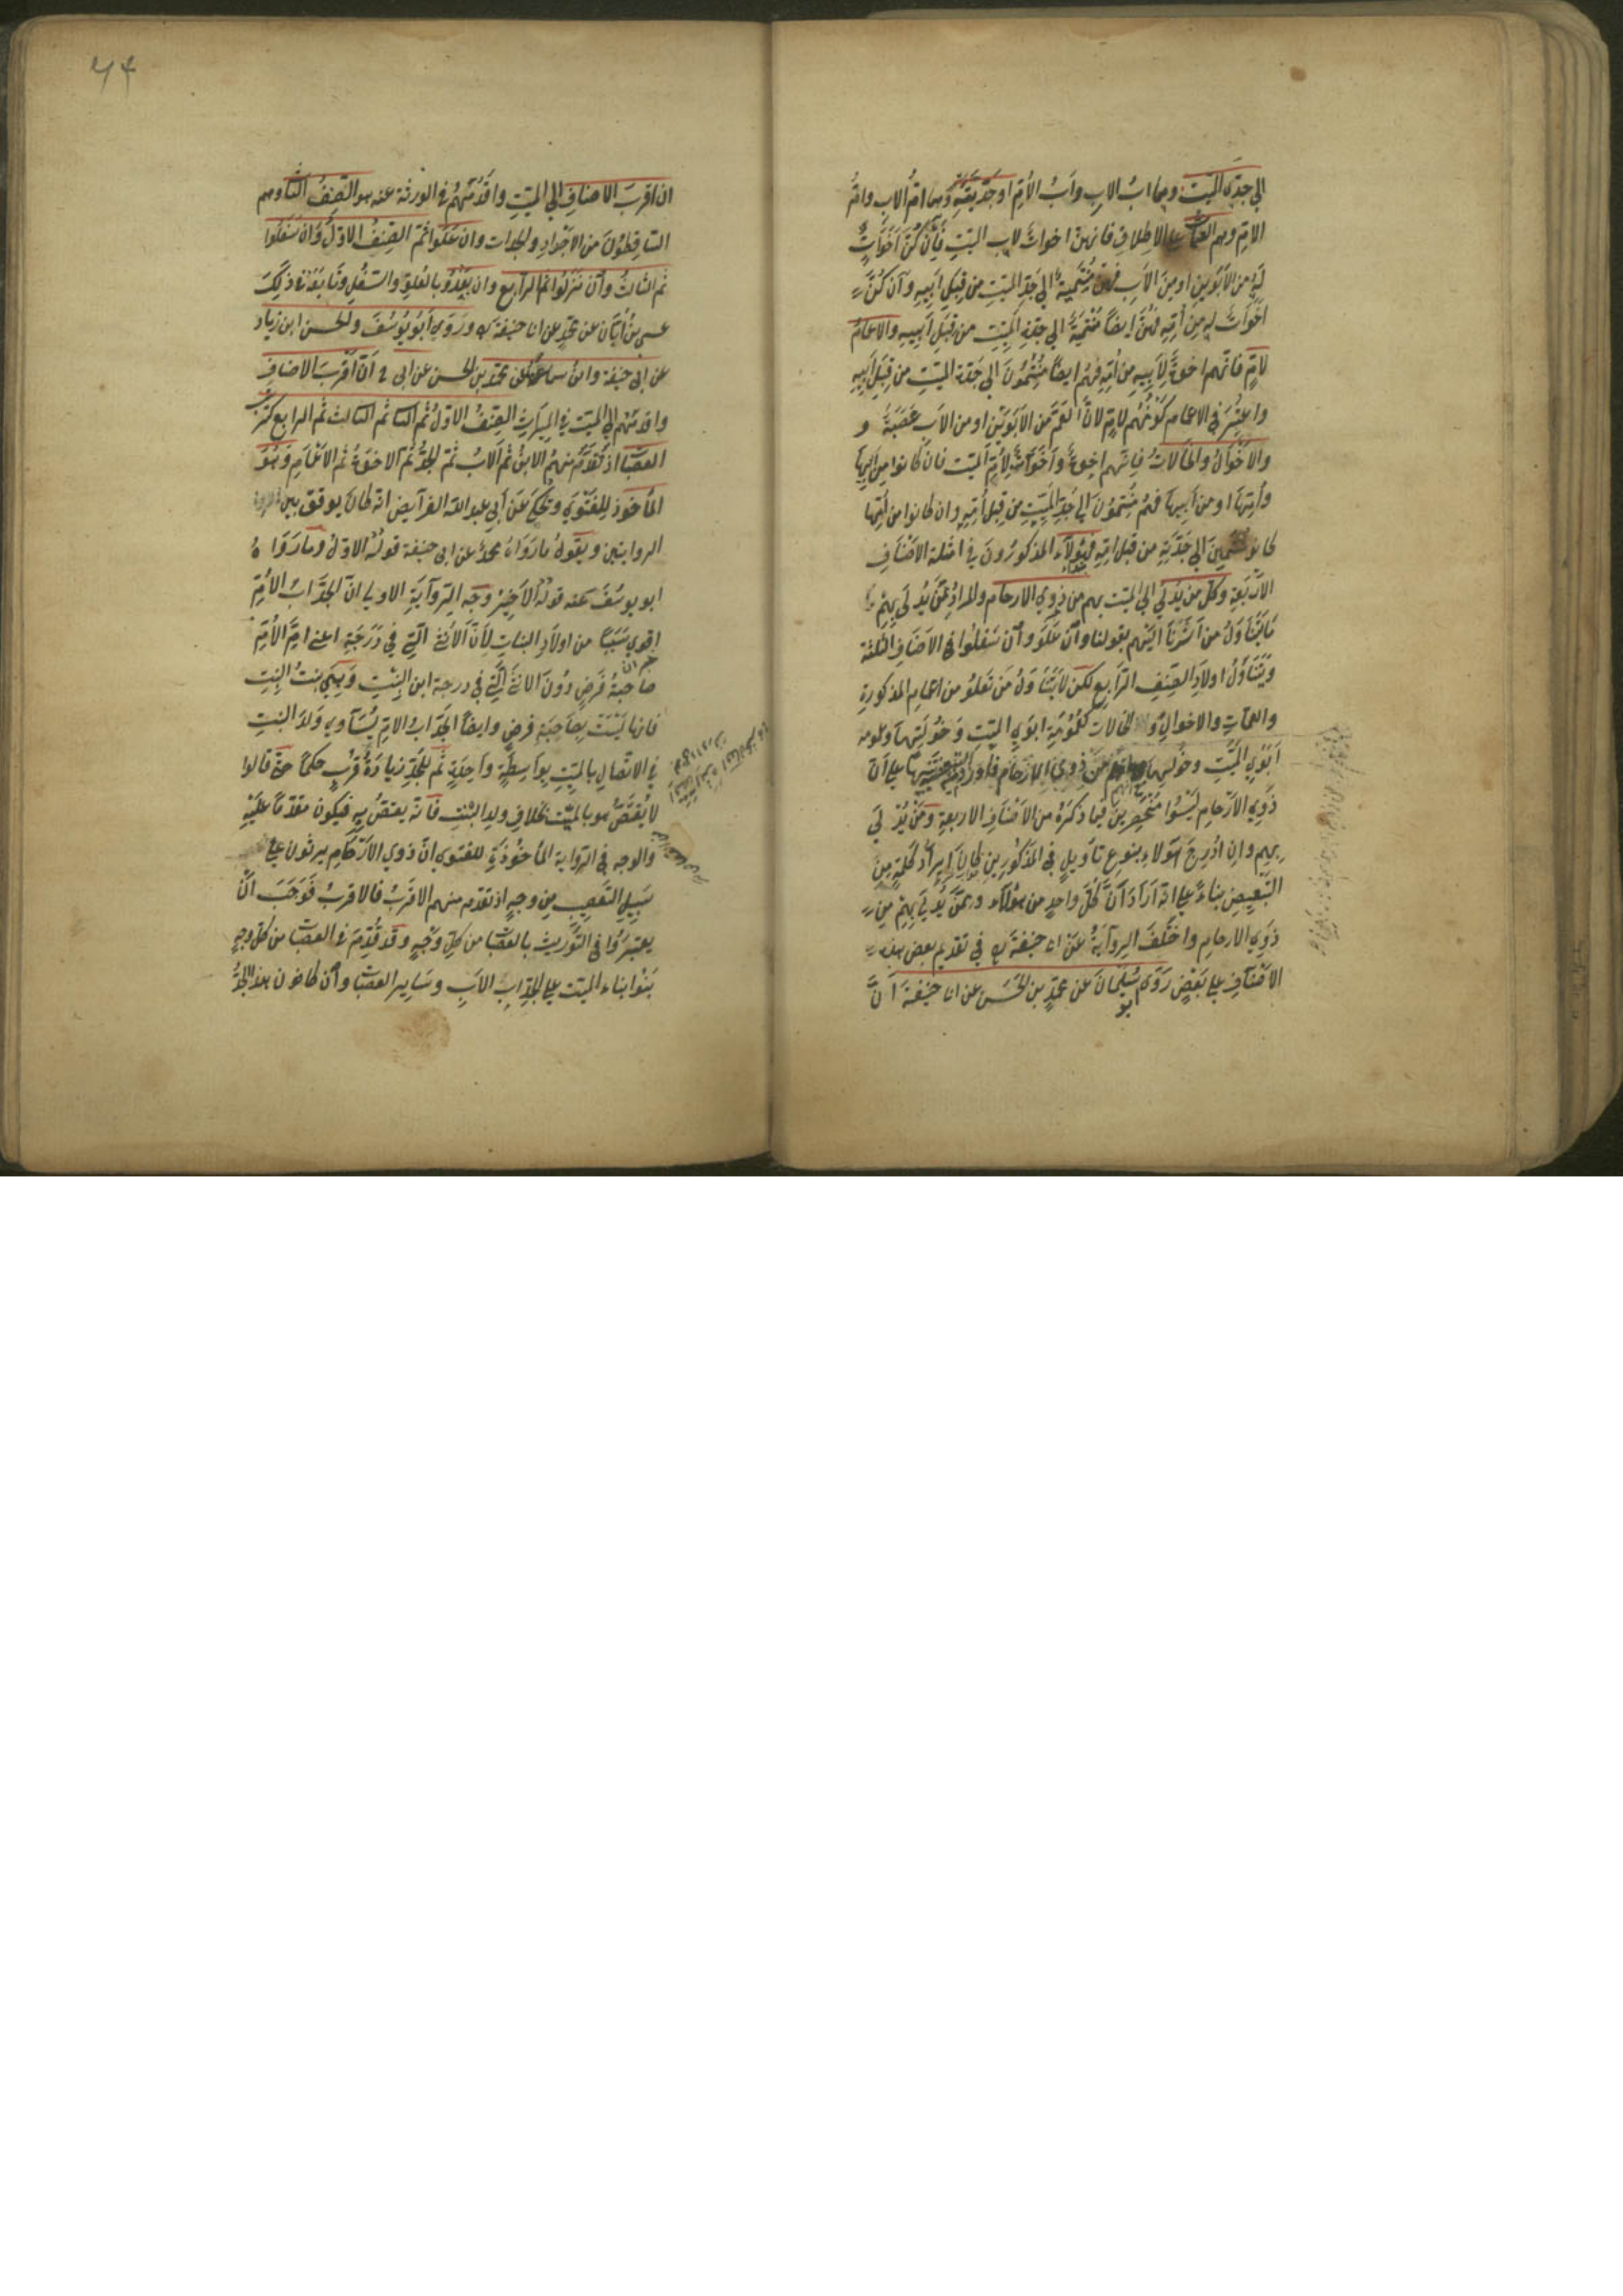 الي جدي الميت وهما اب الاب واب الام او جدتيه وهما ام الاب وام
الام وهم العمات علي الاطلاق فانهن اخوات لاب الميت فان كن اخوات
له من الابوين او من الاب فهن منتمية الي جد الميت من قبل ابيه وان كن
اخوات له من امه فهن ايضا منتمية الي جدة الميت من قبل ابيه والاعمام
لام فانهم اخوة لابيه من امه فهم ايضا منتمون الي جدة الميت من قبل ابيه
واعتبر في الاعمام كونهم لام لان العم من الابوين او من الاب عصبة و
والاخوال والخالات فانهم اخوة واخوات لام الميت فان كانوا من ابيها
وامها او من ابيها فهم منتمون الي جد الميت من قبل امه وان كانوا من امها
كانوا منتمين الي جدته من قبل امه فهؤلاء المذكورون في امثلة الاصناف
الاربعة وكل من يدلي الي الميت بهم من ذوي الارحام والمراد بمن يدلي بهم
ما يتناول من اشرنا اليهم بقولنا وان علو وان سفلوا في الاصناف الثلثة
ويتناول اولاد الصنف الرابع لكن لا يتناول من تعلو من اعمام المذكورة
والعمات والاخوال والخالات كعمومة ابوي الميت وخؤلتهما وعمومة
ابوي الميت وخولتهما من ذوي الارحام علي ان
ذوي الارحام ليسوا منحصرين فيما ذكره من الاصناف الاربعة ومن يدلي
بهم وان ادرج هؤلاء بنوع تاويل في المذكورين كان ايراد كلمة من
التبعيض بناء علي انه اراد ان كل واحد من هؤلاء وممن يدلي بهم من
ذوي الارحام واختلف الرواية عن ابي حنيفة في تقديم بعض هذه
الاصناف علي بعض روي ابو سليمان عن محمد بن الحسن عن ابي حنيفة ان
٦٤
ان اقرب الاصناف الي الميت واقدمهم في الورثة عنه هو الصنف الثا وهم
الساقطون من الاجداد والجدات وان علوا ثم الصنف الاول وان سفلوا
ثم الثالث وان نزلوا ثم الرابع وان بعدوا بالعلو والسفل وتابعه في ذلك
عيسي بن ابان عن محمد عن ابي حنيفة وروي ابو يوسف والحسن ابن زياد
عن ابي حنيفة وابن سماعة عن محمد بن الحسن عن ابي ح ان اقرب الاصناف
واقدمهم الي الميت في الميراث الصنف الاول ثم الثا ثم الثالث ثم الرابع كترتيب
العصبا اذ تقدم منهم الابن ثم الاب ثم الجد ثم الاخوة ثم الاعمام وهو
الماخوذ للفتوي وحكي عن ابي عبد الله الفرايض انه كان يوفق بين
الروايتين ويقول ما رواه محمد عن ابي حنيفة قوله الاول وما رواه
ابو يوسف عنه قوله الاخير وجه الرواية الاولي ان الجد اب الام
اقوي سببا من اولاد البنات لان الانثي التي في درجته اعني ام الام
صاحبة فرض دون الانثي التي في درجة ابن البنت وهي بنت البنت
فانها ليست بصاحبة فرض وايضا الجد اب الام يساوي ولد البنت
في الاتصال بالميت بواسطة واحدة ثم للجد زيادة قرب حكما حتي قالوا
لا يقتص هو بالميت بخلاف ولد البنت فانه يقتص به فيكون مقدما عليه
والوجه في الرواية الماخوذة للفتوي ان ذوي الارحام يرثون علي
سبيل التعصيب من وجه اذ تقدم منهم الاقرب فالاقرب فوجب ان
يعتبروا في التوريث بالعصبا من كل وجه وقد قدم في العصبا من كل وجه
بنوا ابناء الميت علي الجد اب الاب وساير العصبا وان كانون هذا الجد